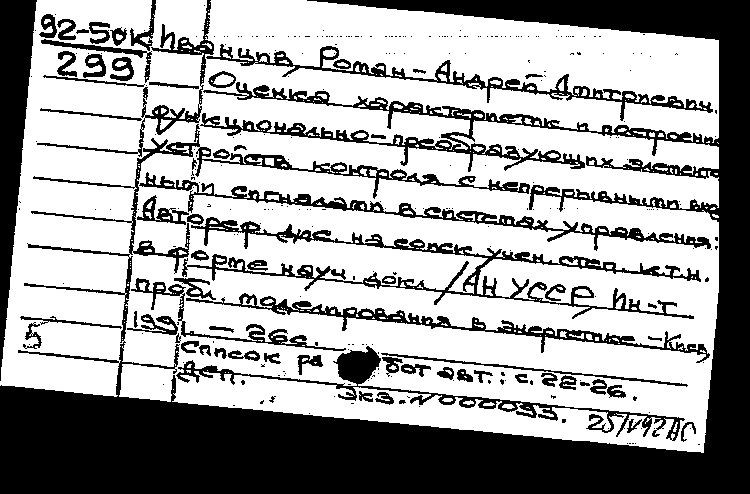 92-50к Иванцив, Роман-Андрей Дмитриевич.
299 Оценка характеристик и построение
функционально-преобразующих элементо
устройств контроля с непрерывными вход
ными сигналами в системах управления:
Автореф. дис. на соиск. учен. степ. к.т.н.
в форме науч. докл. / АН УССР, Ин-т
пробл. моделирования в энергетике. - Киев,
1991. - 26с.
5 Список ра бот авт.: с. 22-26.
Деп. Экз. N000093. 25/V92 АС